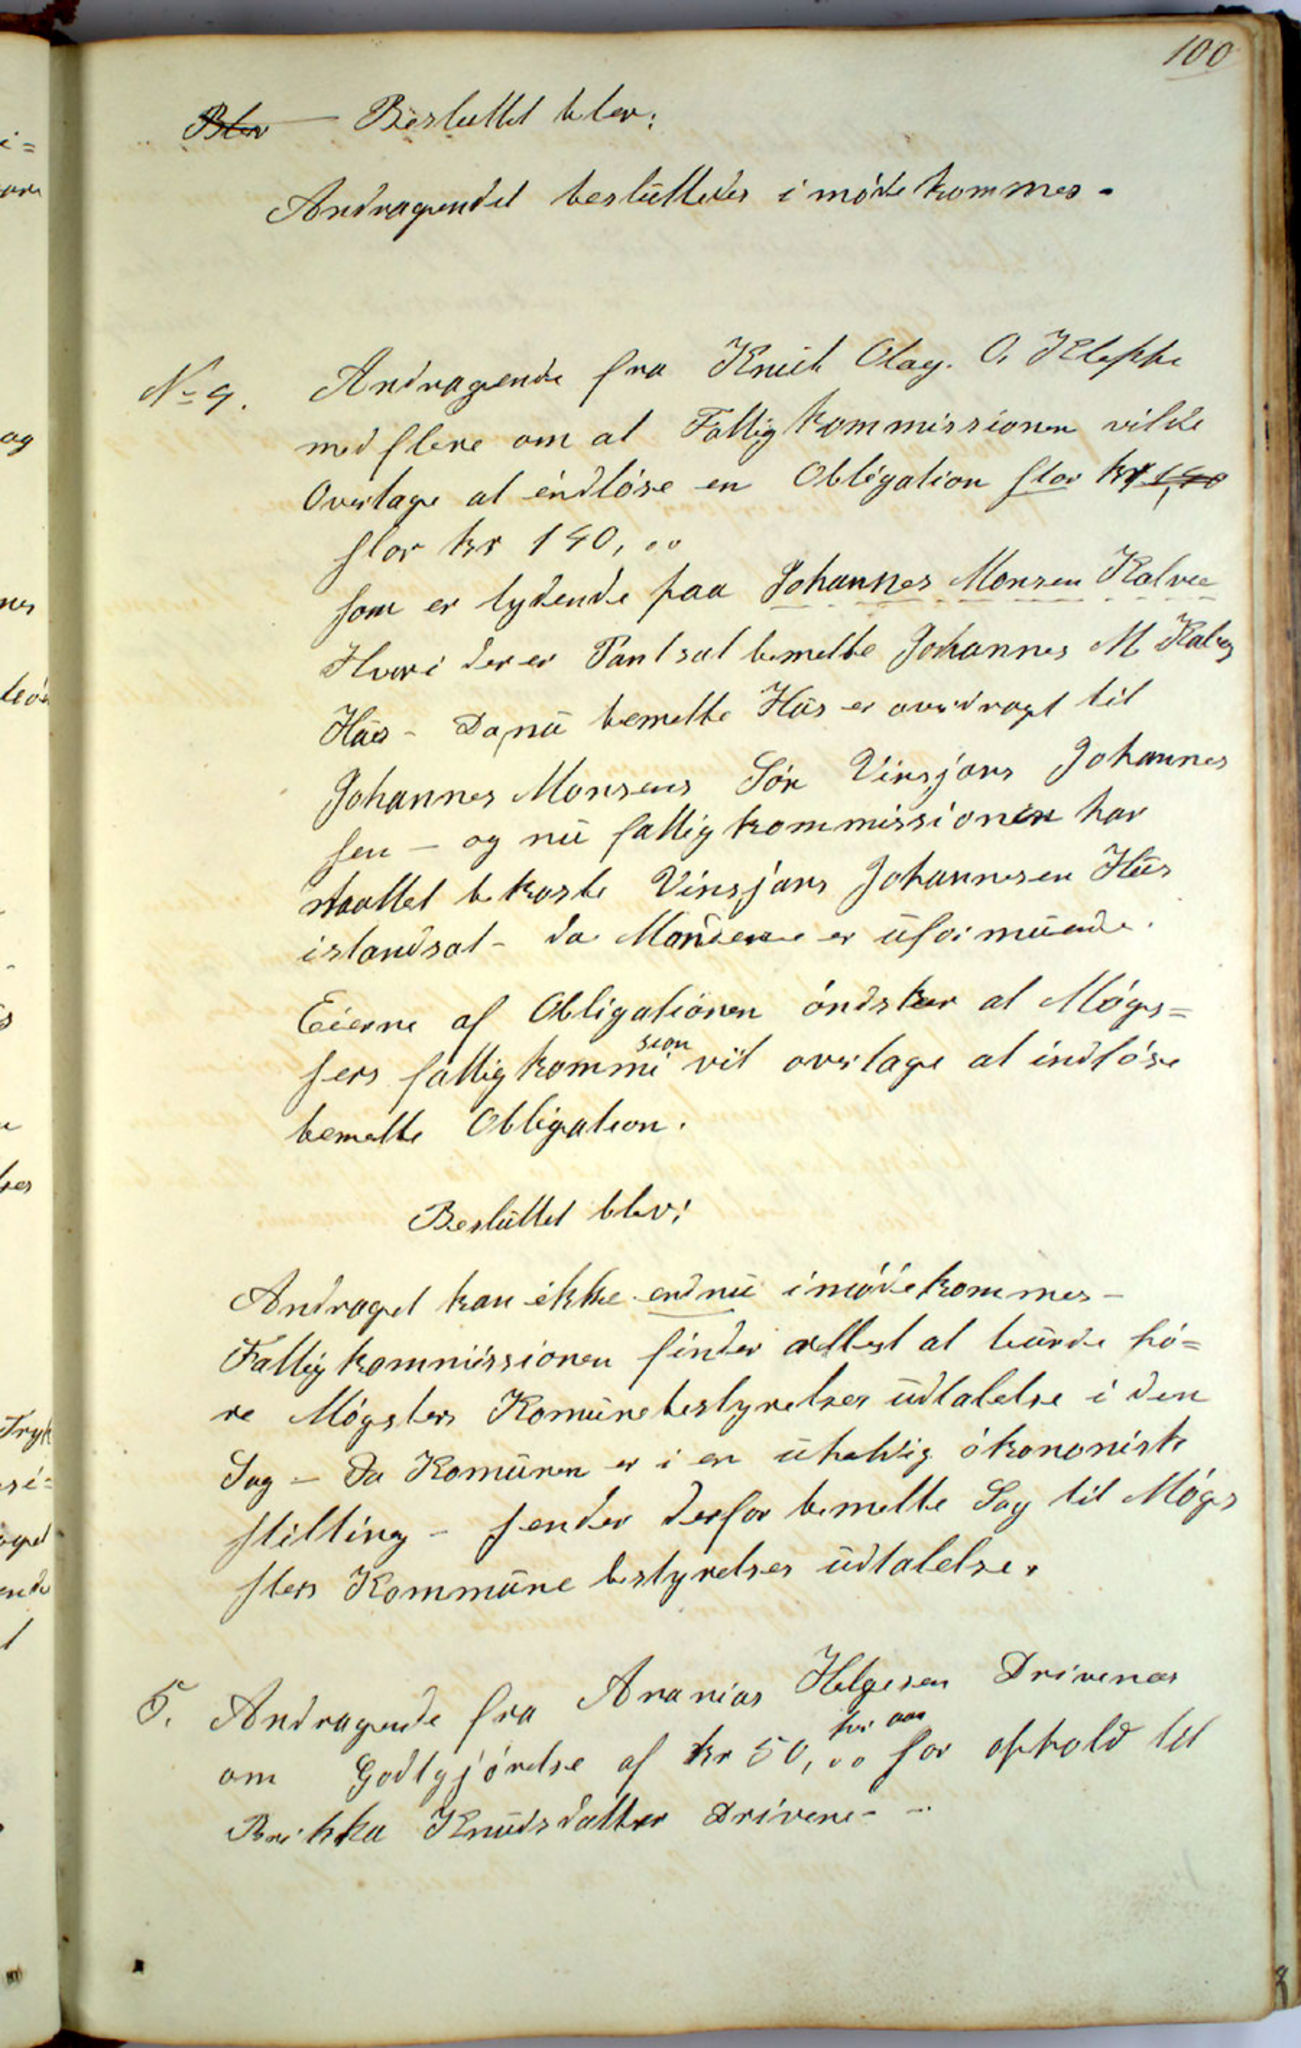 100
Blev Besluttet blev:
Andragendet besluttedes imødekommes -
No 4. Andragende fra Knut Olag. O. Kleppe
med flere om at Fattigkommissionen vilde
Overtage at indløse en Obligation stor kr 140
stor kr 140,00
som er lydende paa Johannes Monsen Kalve
Hvori der er Pantsat bemelte Johannes M Kalves
Hus - Da nu bemelte Hus er overdraget til
Johannes Monsens Søn Vinsjans Johannes
sen - og nu fattigkommissionen har
maattet bekoste Vinsjans Johannesen Hus
istandsat - da Mandene er uformuende.
Eierne af Obligationen øndsker at Møgs=
ters fattigkommision vil overtage at indløse
bemelte Obligation.
Besluttet blev:
Andraget kan ikke endnu imødekommes -
Fattigkommissionen finder at burde hø=
re Møgsters Komunebestyrelses udtalelse i den
Sag - Da Komunen er i en uheldig økonomisk
stilling - sender derfor bemelte Sag til Møgs
sters Kommune bestyrelses udtalelse.
5. Andragende fra Ananias Helgesen Drivenes
om Godtgjørelse af kr 50,00 per aar for ophold til
Brikka Knudsdatter Drivene - -